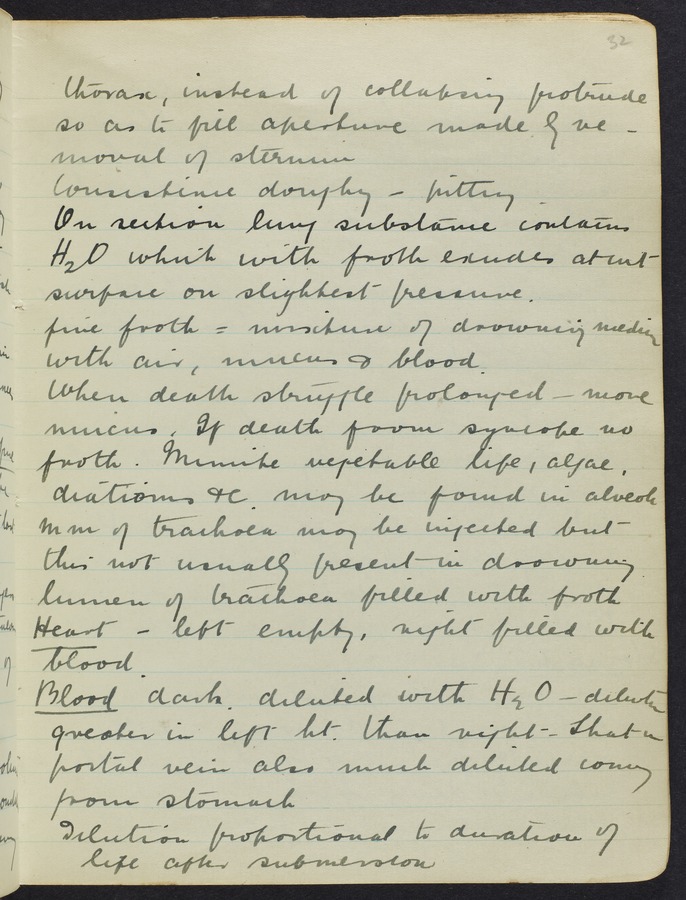 32
thorax, instead of collapsing protrude
so as to fill aperture made by re-
moval of sternum
Consistence doughy - pitting
On section lung substance contains
H2O which with froth exudes at cut
surface on slightest pressure.
fine froth = mixture of drowning medium
with air, mucus & blood.
When death struggle prolonged - more
mucus. If death from syncope no
froth. Minute vegetable life, algae,
diatioms &c may be found in alveoli
mm of trachoea may be injected but
this not usually present in drowning
lumen of trachoea filled with froth
Heart - left empty, right filled with
blood
Blood dark, diluted with H2O - dilution
greater in left ht. than right - that in
portal vein also much diluted coming
from stomach
Dilution proportional to duration of
life after submersion